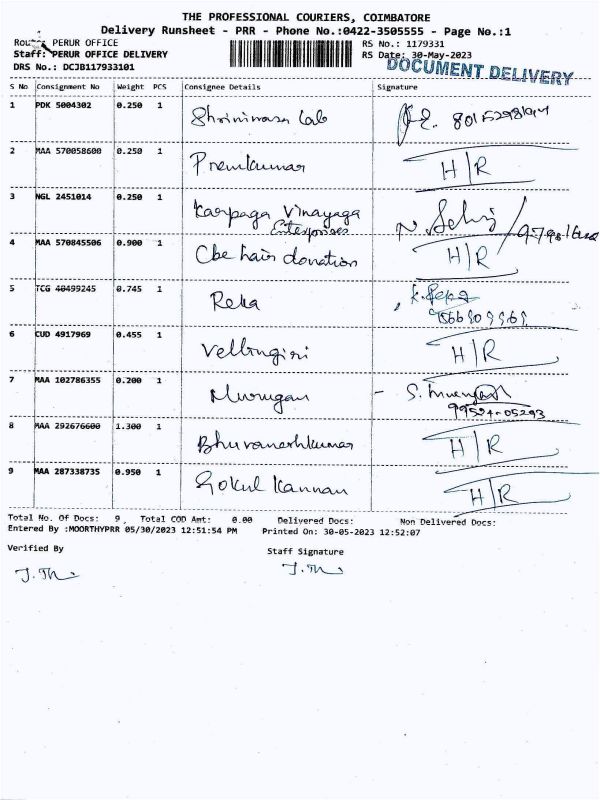 THE PROFESSIONAL COURIERS, COIMBATORE
Delivery Runsheet - PRR - Phone No.:0422-3505555 - Page No.:1
Route: PERUR OFFICE RS No.: 1179331
Staff: PERUR OFFICE DELIVERY RS Date: 30-May-2023
DRS No.: DCJB117933101 DOCUMENT DELIVERY
S No Consignment No Weight PCS Consignee Details Signature
1 PDK 5004302 0.250 1 Shrinivasa Lab
2 MAA 570058600 0.250 1 Premkumar H/R
3 NGL 2451014 0.250 1 Karpaga Vinayaga
Enterprises
4 MAA 570845506 0.900 1 Cbe hair donation H/R
5 TCG 40499245 0.745 1 Reka
6 CUD 4917969 0.455 1 Vellingiri H/R
7 MAA 102786355 0.200 1 Murugan
99524-05293
8 MAA 292676600 1.300 1 Bhuvaneshkumar H/R
9 MAA 287338735 0.950 1 Gokul Kannan H/R
Total No. Of Docs: 9 Total COD Amt: 0.00 Delivered Docs: Non Delivered Docs:
Entered By :MOORTHYPRR 05/30/2023 12:51:54 PM Printed On: 30-05-2023 12:52:07
Verified By Staff Signature